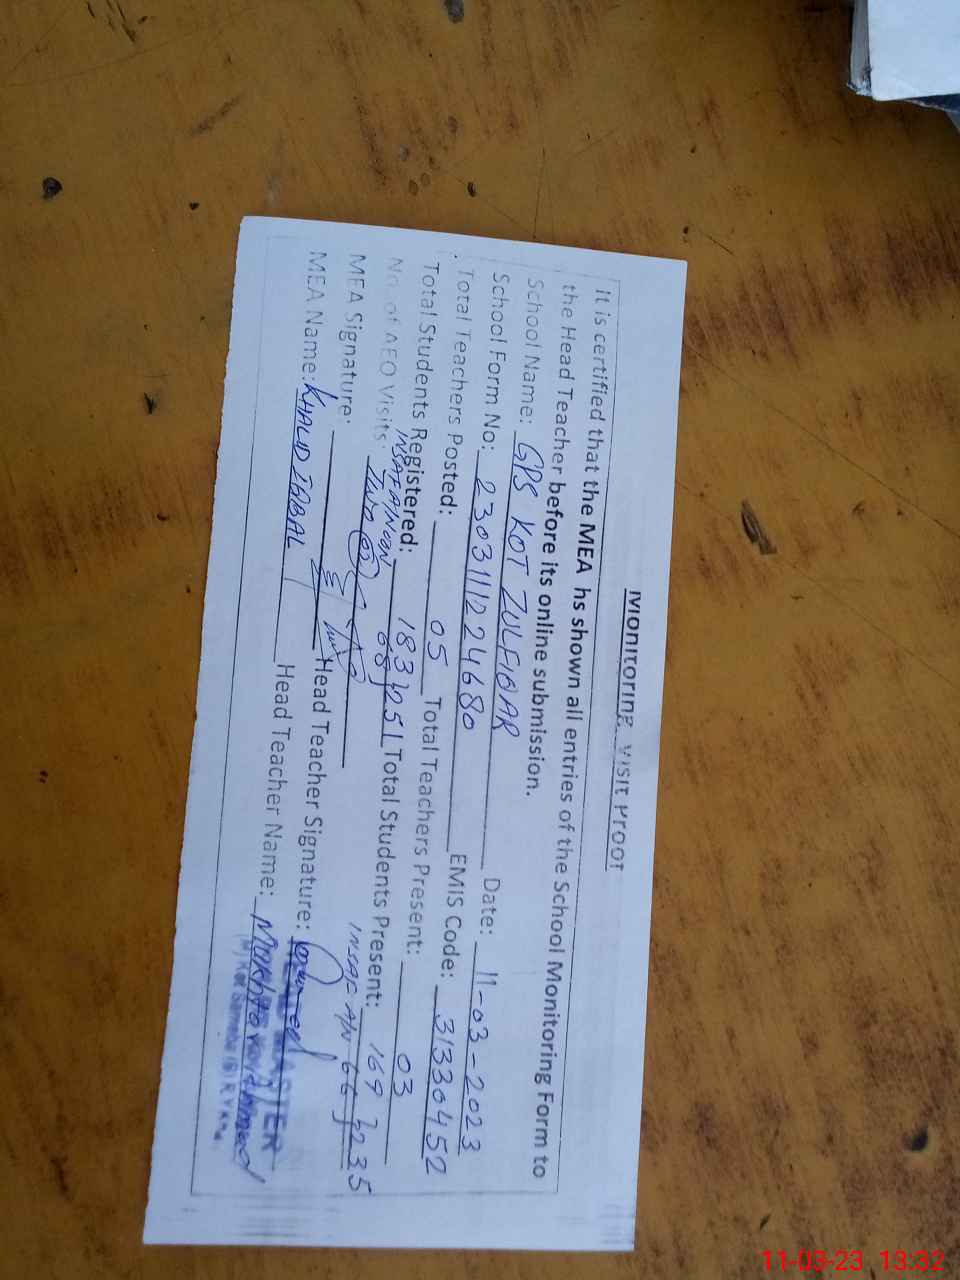 Monitoring Visit Proof
It is certified that the MEA hs shown all entries of the School Monitoring Form to
the Head Teacher before its online submission.
School Name: GPS KOT ZULFIQAR Date: 11-03-2023
School Form No: 2303111224680 EMIS Code: 31330452
Total Teachers Posted: 05 Total Teachers Present: 03
Total Students Registered: 183 } 251 Total Students Present: 169 } 235
INSAFANOON 68 INSAF AN 66
No of AEO Visits Two
MEA Signature: Head Teacher Signature:
MEA Name: KHALID IQBAL Head Teacher Name:
11-03-23 13:32